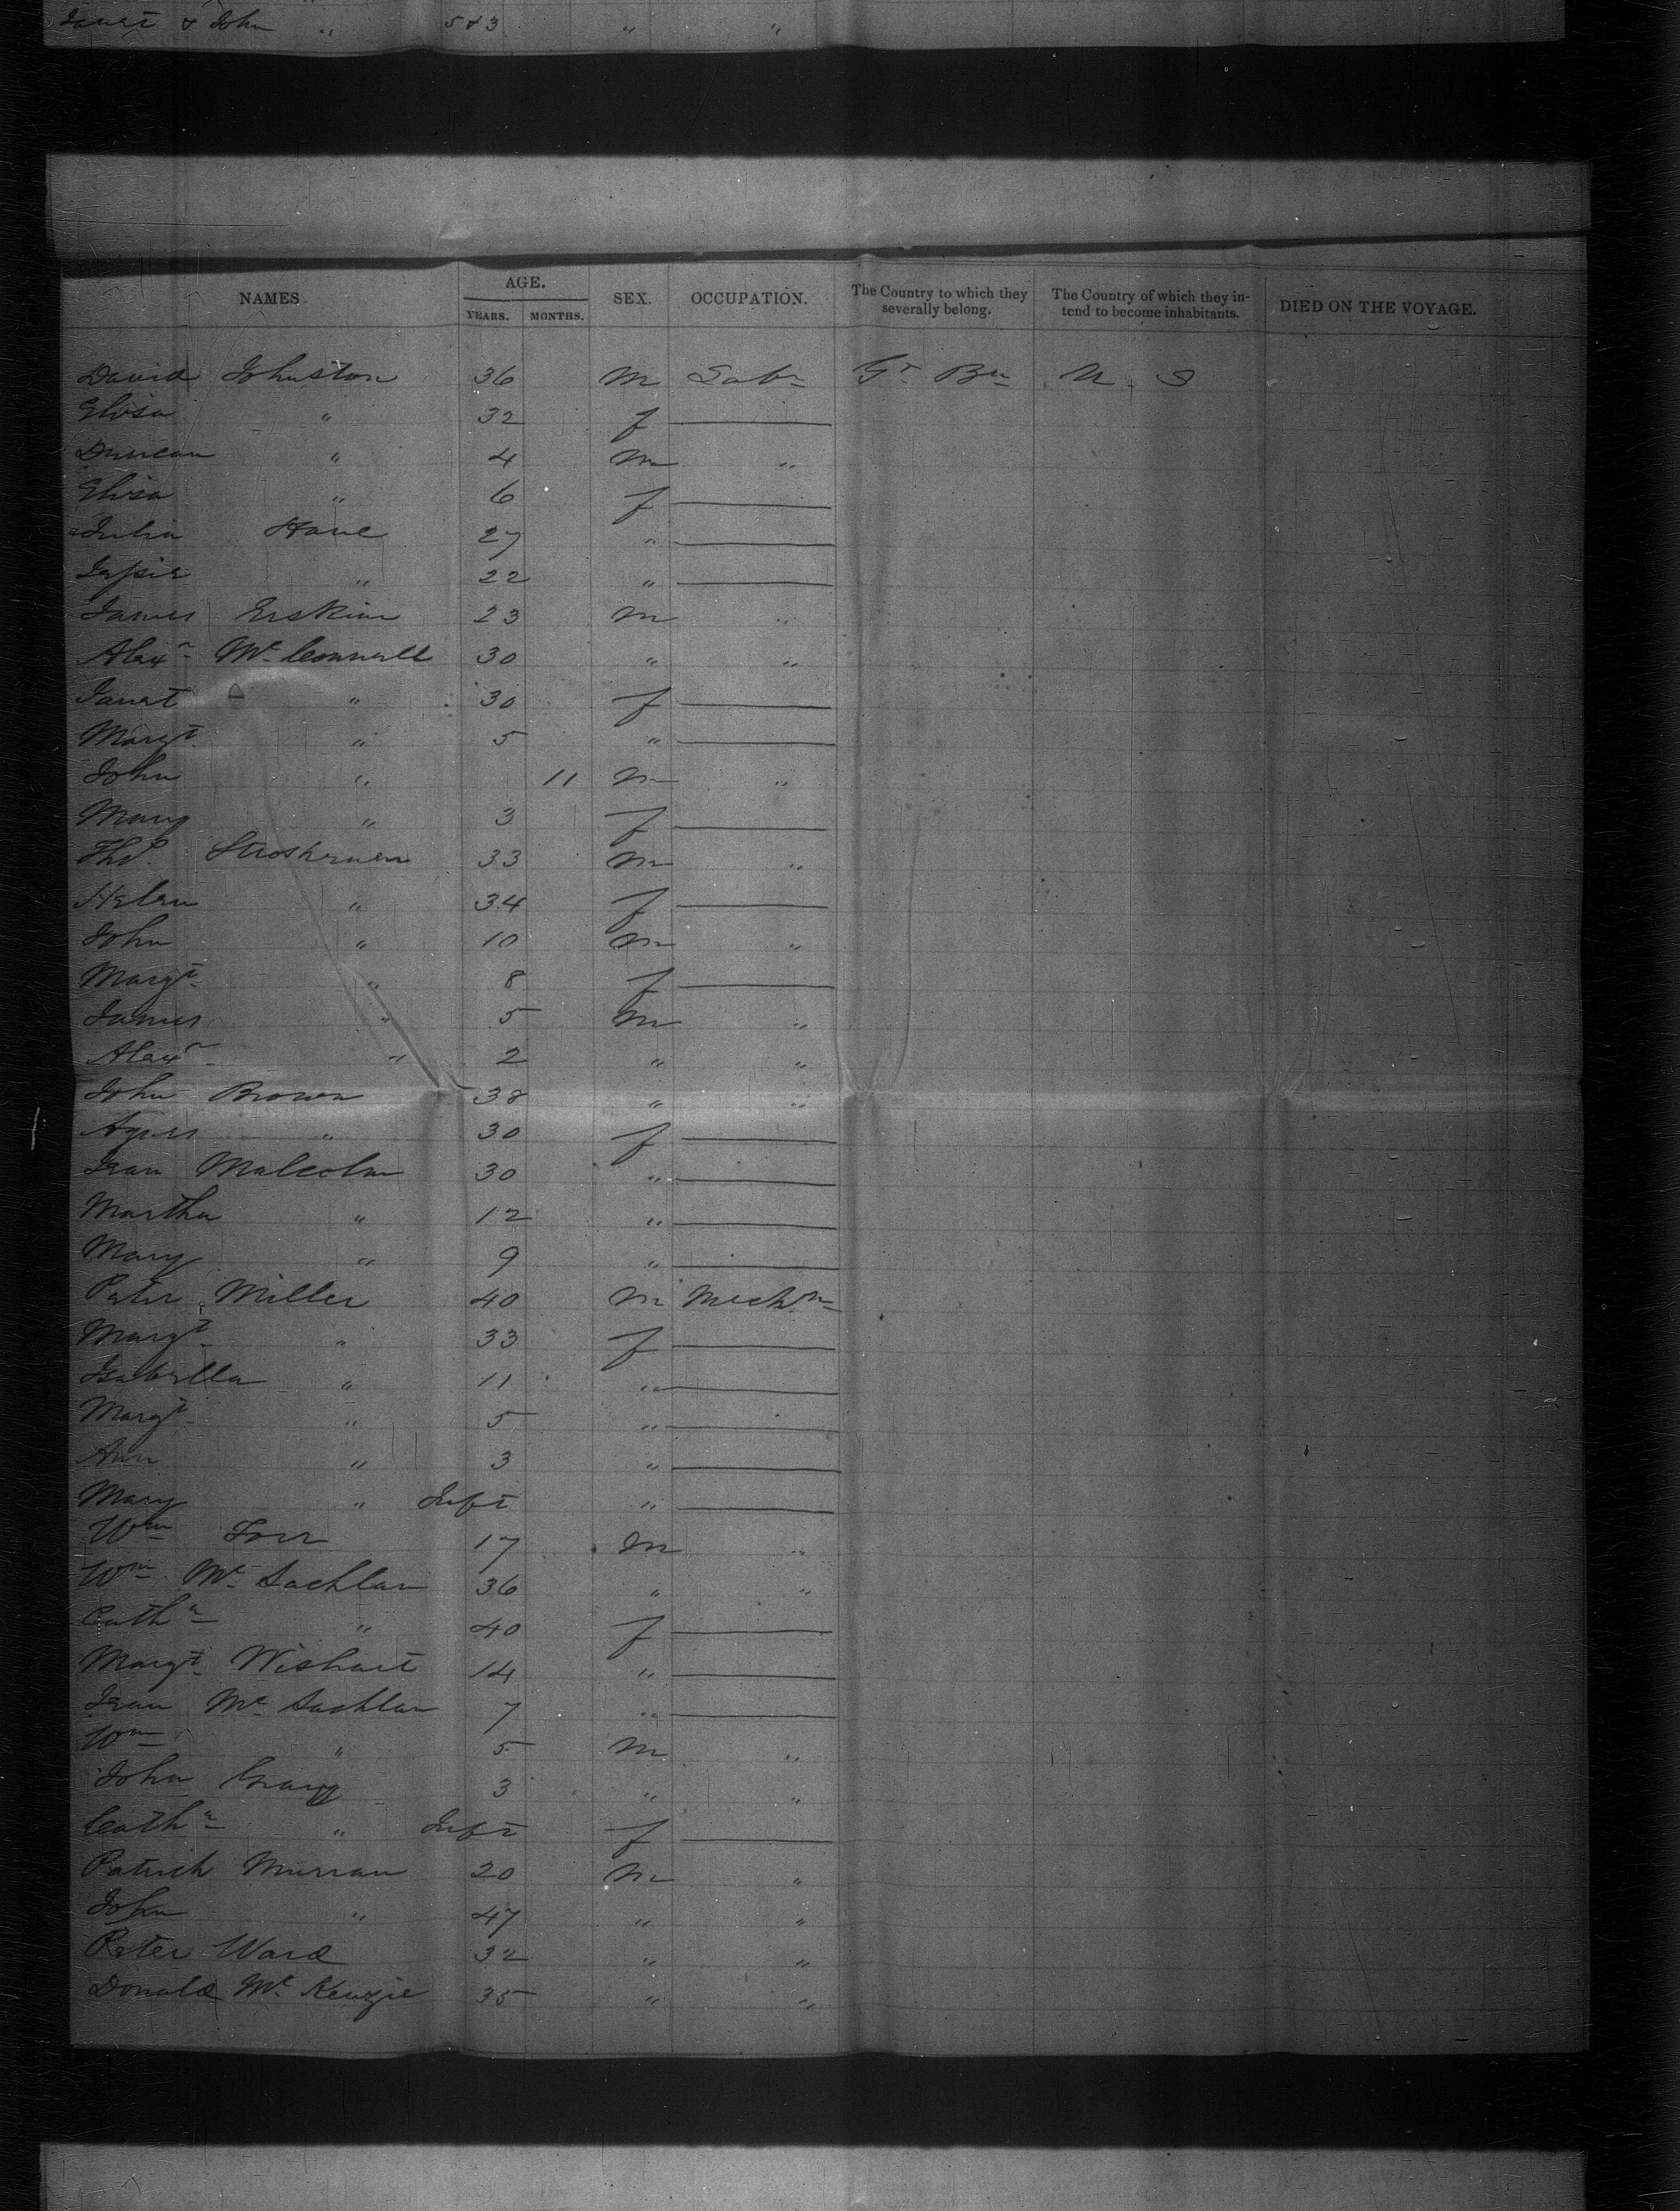 Janet & John " 5 & 3 " "
NAMES. AGE. SEX. OCCUPATION. The Country to which they severally belong. The Country of which they intend to become inhabitants. DIED ON THE VOYAGE.
YEARS. MONTHS.
David Johnston 36 m Labr Gt Bn U. S
Eliza " 32 f
Duncan " 4 m "
Eliza " 6 f
Julia 27 "
" 22 "
James Erskine 23 m "
Alexr McConnell 30 " "
Janet " 30 f
Margt " 5 "
John " 11 m "
Mary " 3 f
Thos 33 m "
Helen " 34 f
John " 10 m "
Margt " 8 f
James " 5 m "
Alexr " 2 " "
John Brown 38 " "
Agnes " 30 f
Jean Malcolm 30 "
Martha " 12 "
Mary " 9 "
Peter Miller 40 m Mechn
Margt " 33 f
Isabella " 11 "
Margt " 5 "
Ann " 3 "
Mary " Inft "
Wm 17 m "
Wm McLachlan 36 " "
Cathn " 40 f
Margt Wishart 14 "
Jean McLachlan 7 "
Wm " 5 m "
John 3 " "
Cathn " Inft f
Patrick Murran 20 m "
John " 47 " "
Peter Ward 32 " "
Donald McKenzie 35 " "